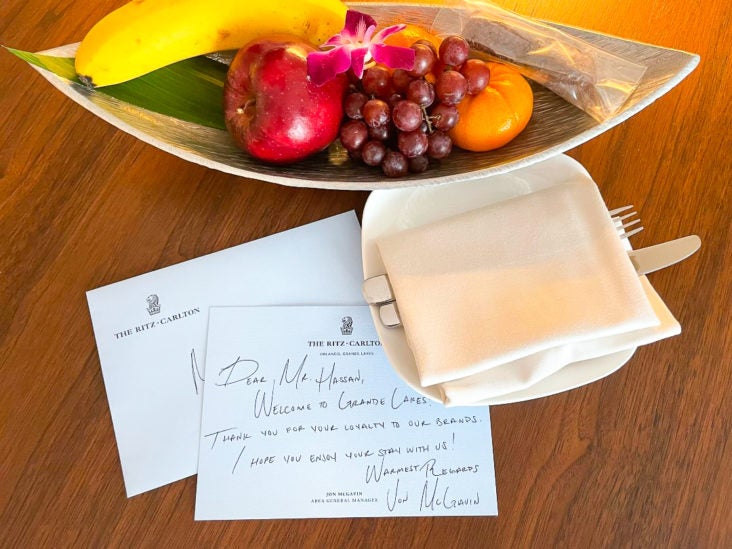 THE RITZ-CARLTON
M
THE RITZ-CARLTON
ORLANDO, GRANDE LAKES
DEAR, MR. HASSAN,
WELCOME TO GRANDE LAKES.
THANK YOU FOR YOUR LOYALTY TO OUR BRANDS.
I HOPE YOU ENJOY YOUR STAY WITH US!
WARMEST REGARDS
JON MCGAVIN
JON MCGAVIN
AREA GENERAL MANAGER